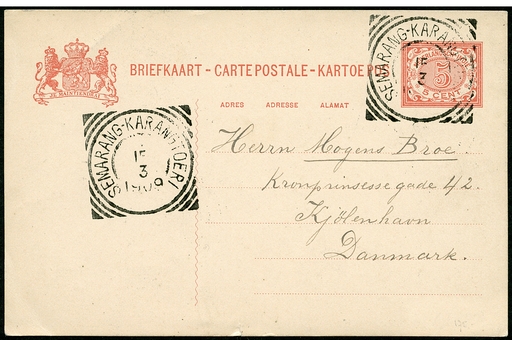 BRIEFKAART - CARTE POSTALE - KARTOE POS
5
5 CENT
SEMARANG-KARANG
15
3
JE MAINTIENDRAI
ADRES ADRESSE ALAMAT
SEMARANG-KARANGTOERI
15
3
1909
Herrn Mogens Broe.
Kronprinsessegade 42.
Kjöbenhavn
Danmark.